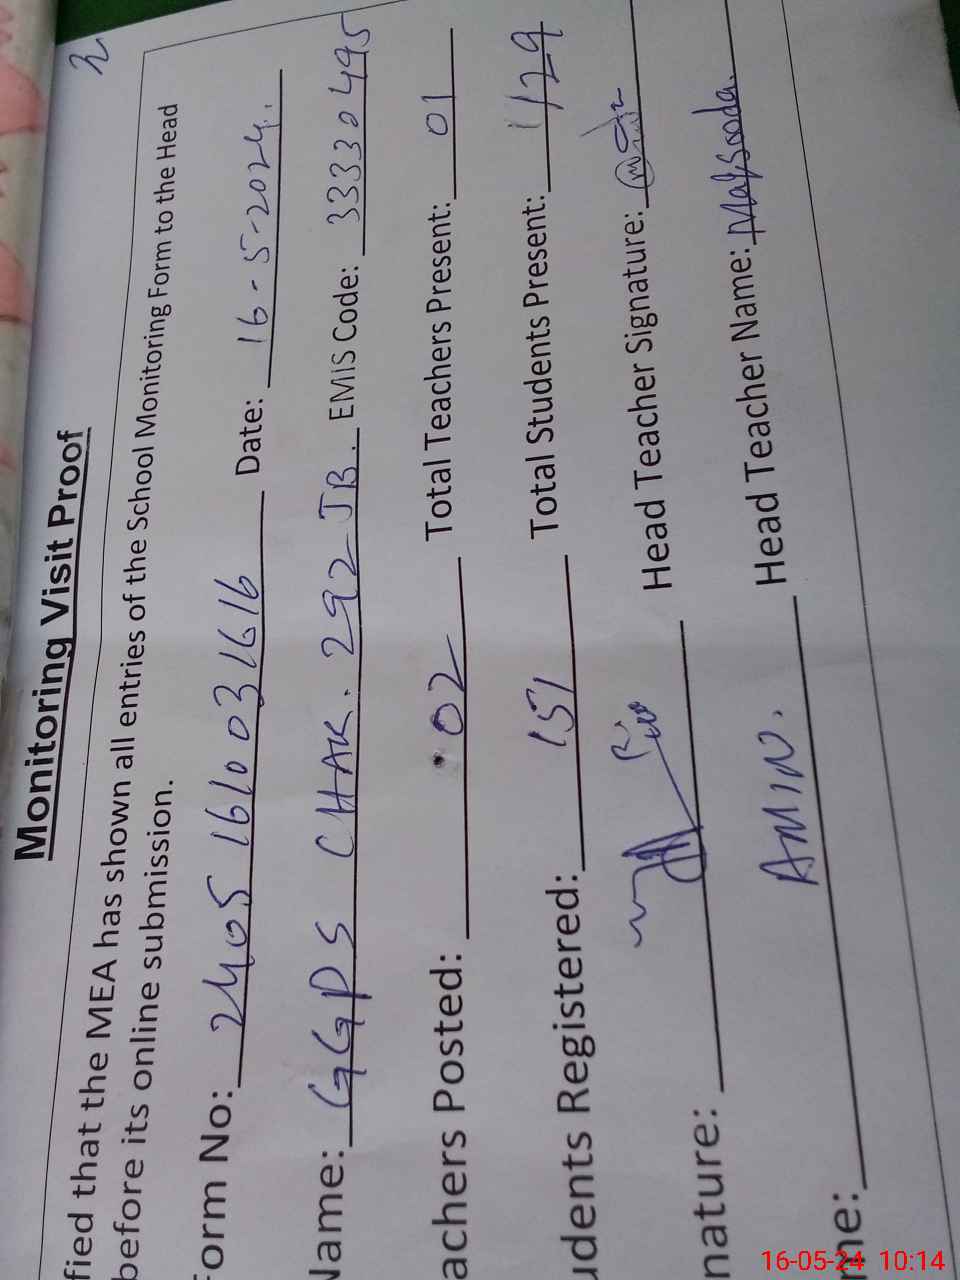 2
Monitoring Visit Proof
fied that the MEA has shown all entries of the School Monitoring Form to the Head
before its online submission.
Form No: 2405161003 1616 Date: 16-5-2024.
Name: GGPS CHAK. 292 JB. EMIS Code: 33330495
achers Posted: 02 Total Teachers Present: 01
udents Registered: 151 Total Students Present: 129
nature: Head Teacher Signature:
me: AMIN. Head Teacher Name: Maksooda.
16-05-24 10:14